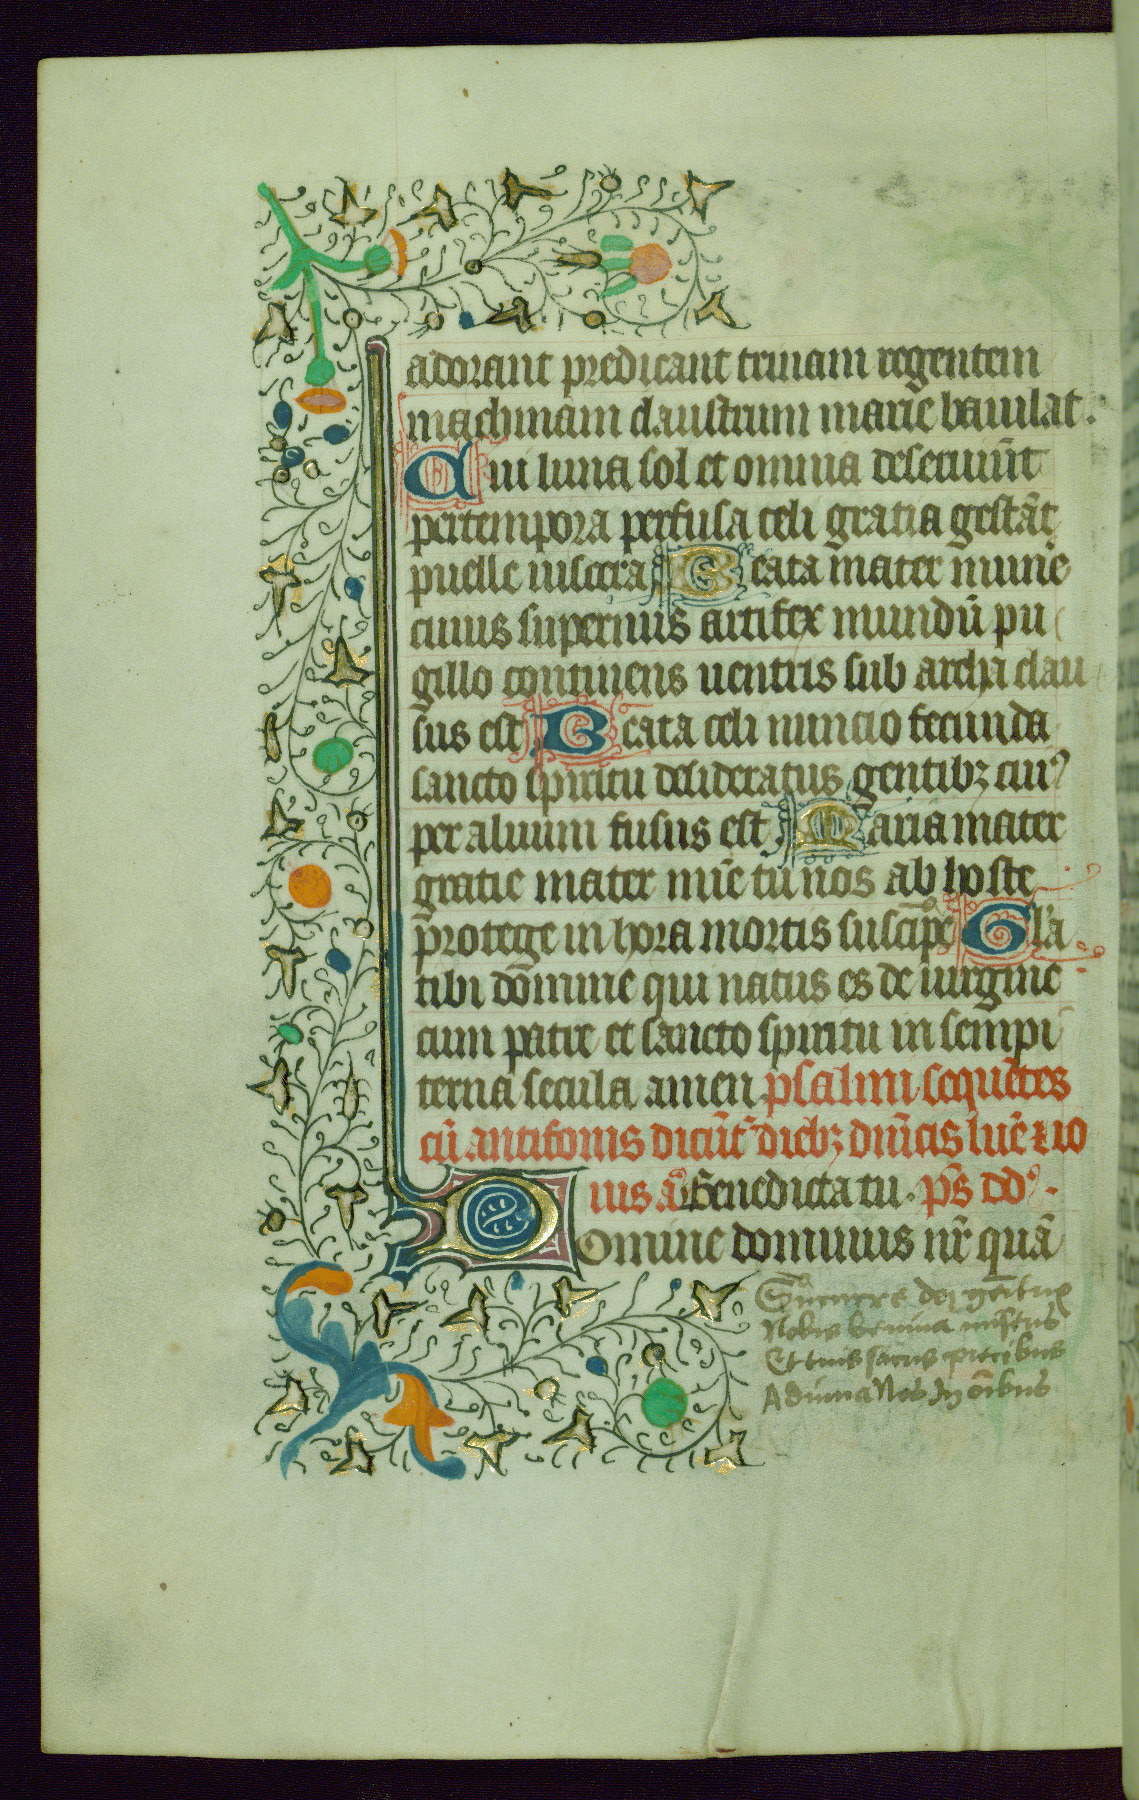 adorant predicant trinam regentem
machinam claustrum marie baiulat.
Cui luna sol et omnia deseruiūt
per tempora perfusa celi gratia gestāt
puelle uiscera Beata mater munē
cuius supernus artifex mundū pu
gillo continens uentris sub archa clau
sus est Beata celi nuncio fecunda
sancto spiritu desideratus gentibȝ cuiꝰ
per aluum fusus est Maria mater
gratie mater mīe tu nos ab hoste
protege in hora mortis suscipe Glꝛa
tibi domine qui natus es de uirgine
cum patre et sancto spiritu in sempi
terna secula amen psalmi sequētes
cū antifonis dicūt diebȝ dnīcis lune ⁊ io
uis a᷒ Benedicta tu. ps dd.
Domine dominus nr̄ quā
dei genitrix
Nobis
Et tuis sacris precibus
Adiuua Nos In oībus